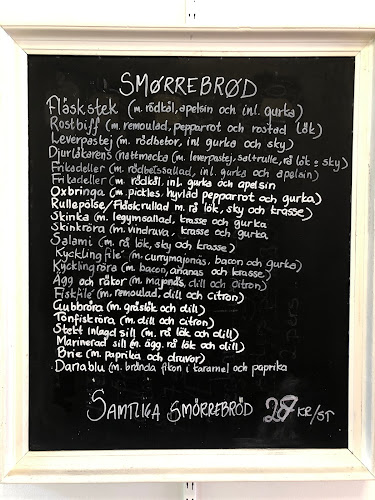 SMØRREBRØD
Fläskstek (m. rödkål, apelsin och inl. gurka)
Rostbiff (m. remoulad, pepparrot och rostad lök)
Leverpastej (m. rödbetor, inl gurka och sky)
Djurläkarens nattmacka (m. leverpastej, saltrulle, rå lök & sky)
Frikadeller (m. rödbetssallad, inl. gurka och apelsin)
Frikadeller (m. rödkål, inl. gurka och apelsin
Oxbringa (m. pickles, hyvlad pepparrot och gurka)
Rullepölse/Fläskrullad m. rå lök, sky och krasse)
Skinka (m. legymsallad, krasse och gurka
Skinkröra (m. vindruva, krasse och gurka
Salami (m. rå lök, sky och krasse)
Kycklingfilé (m. currymajonäs, bacon och gurka)
Kycklingröra (m. bacon, ananas och krasse)
Ägg och räkor (m. majonäs, dill och citron)
Fiskfilé (m. remoulad, dill och citron)
Gubbröra (m. gräslök och dill)
Tonfiskröra (m. dill och citron)
Stekt inlagd sill (m. rå lök och dill)
Marinerad sill (m. ägg, rå lök och dill)
Brie (m. paprika och druvor)
Danablu (m. brända fikon i karamel och paprika
SAMTLIGA SMÖRREBRÖD 28 KR/ST